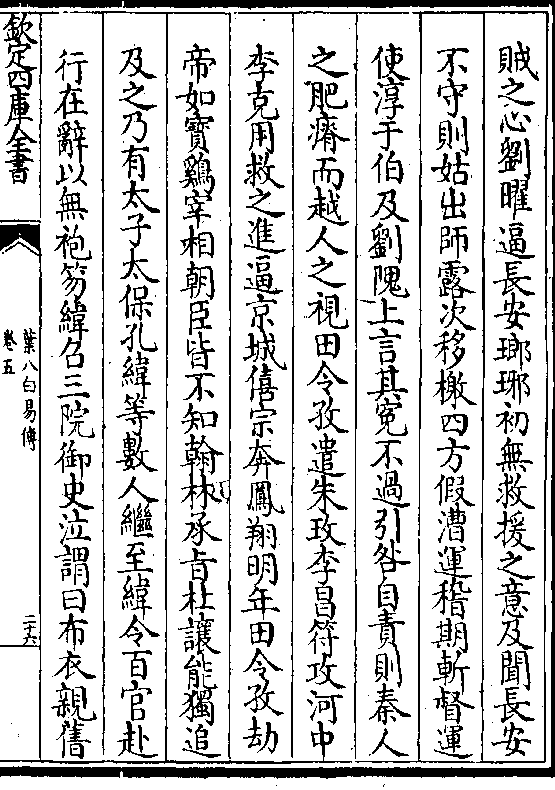 賊之心劉曜逼長安瑯琊初無救援之意及聞長安
不守則姑出師露次移檄四方假漕運稽期斬督運
使淳于伯及劉隗上言其寃不過引咎自責則秦人
之肥瘠而越人之視田令孜遣朱玫李昌符攻河中
李克用救之進逼京城僖宗奔鳳翔明年田令孜劫
帝如寶鷄宰相朝臣皆不知翰林承旨杜讓能獨追
及之乃有太子太保孔緯等數人繼至緯令百官赴
行在辭以無袍笏緯召三院御史泣謂曰布衣親舊
欽定四庫全書
葉八白易傳
卷五
二十六